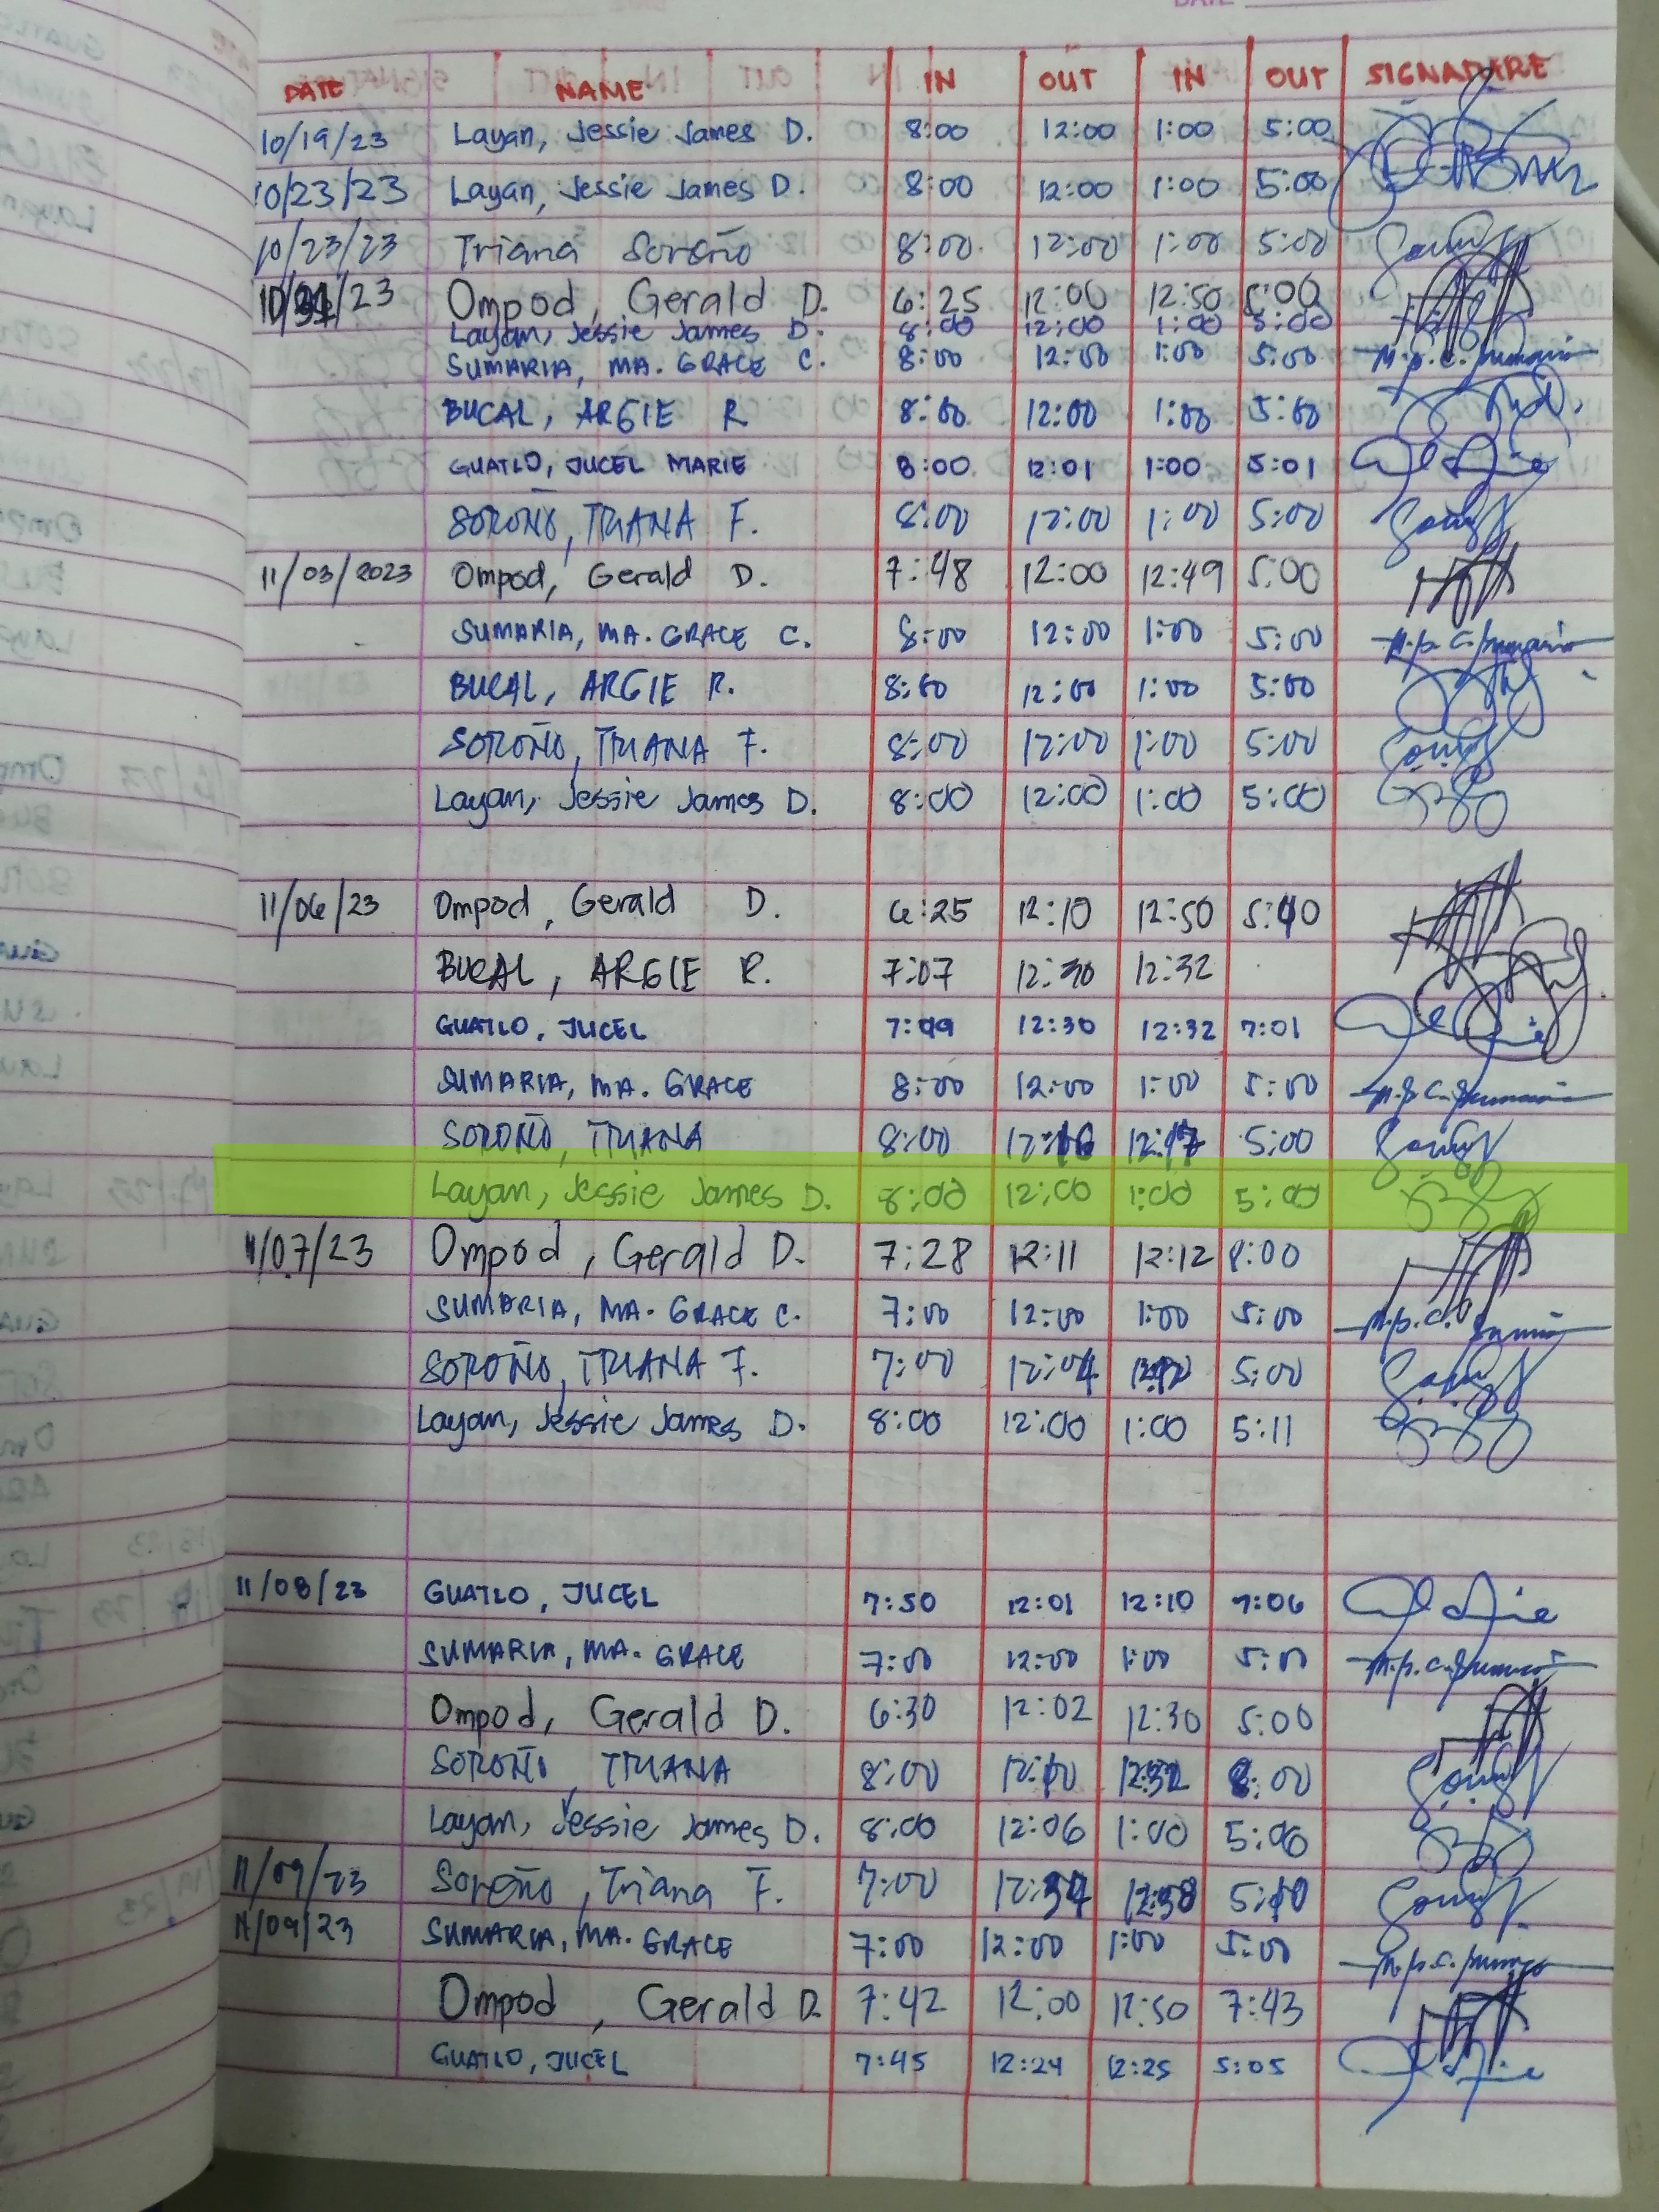 DATE NAME IN OUT IN OUT SIGNADARE
10/19/23 Layan, Jessie James D. 8:00 12:00 1:00 5:00
10/23/23 Layan, Jessie James D. 8:00 12:00 1:00 5:00
10/23/23 Triana Soroño 8:00 12:00 1:00 5:00
/23 Ompod, Gerald D. 6:25 12:00 12:50 5:00
Layan, Jessie James D. 8:00 12:00 1:00 5:00
SUMARIA, MA. GRACE C. 8:00 12:00 1:00 5:00
BUCAL, ARGIE R 8:00 12:00 1:00 5:00
GUATLO, JUCEL MARIE 8:00 12:01 1:00 5:01
SOROÑO, TRIANA F. 8:00 12:00 1:00 5:00
11/03/2023 Ompod, Gerald D. 7:48 12:00 12:49 5:00
SUMARIA, MA. GRACE C. 8:00 12:00 1:00 5:00
BUCAL, ARGIE R. 8:00 12:00 1:00 5:00
SOROÑO, TRIANA F. 8:00 12:00 1:00 5:00
Layan, Jessie James D. 8:00 12:00 1:00 5:00
11/06/23 Ompod, Gerald D. 6:25 12:10 12:50 5:40
BUCAL, ARGIE R. 7:07 12:30 12:32
GUATLO, JUCEL 7:09 12:30 12:32 7:01
SUMARIA, MA. GRACE 8:00 12:00 1:00 5:00
SOROÑO, TRIANA 8:00 12:16 12:17 5:00
Layan, Jessie James D. 8:00 12:00 1:00 5:00
11/07/23 Ompod, Gerald D. 7:28 12:11 12:12 8:00
SUMARIA, MA. GRACE C. 7:00 12:00 1:00 5:00
SOROÑO, TRIANA F. 7:00 12:04 5:00
Layan, Jessie James D. 8:00 12:00 1:00 5:11
11/08/23 GUATLO, JUCEL 7:50 12:01 12:10 7:06
SUMARIA, MA. GRACE 7:00 12:00 1:00 5:00
Ompod, Gerald D. 6:30 12:02 12:30 5:00
SOROÑO, TRIANA 8:00 12:10 12:32 8:00
Layan, Jessie James D. 8:00 12:06 1:00 5:06
11/09/23 Soroño, Triana F. 7:00 12:37 12:38 5:10
11/09/23 SUMARIA, MA. GRACE 7:00 12:00 1:00 5:00
Ompod, Gerald D. 7:42 12:00 12:50 7:43
GUATLO, JUCEL 7:45 12:24 12:25 5:05